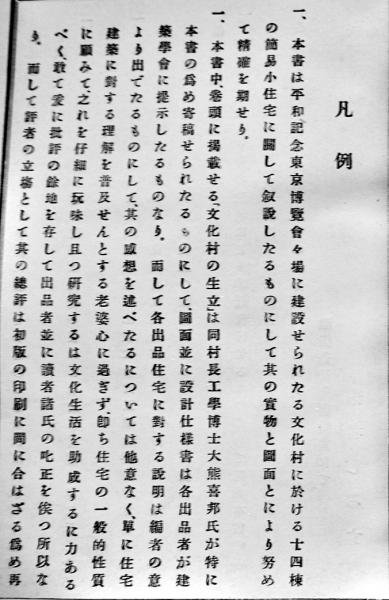 凡例
一、本書は平和記念東京博覽會々場に建設せられたる文化村に於ける十四棟
の簡易小住宅に關して叙説したるものにして其の實物と圖面とにより努め
て精確を期せり。
一、本書中巻頭に掲載せる「文化村の生立」は同村長工學博士大熊喜邦氏が特に
本書の爲め寄稿せられたるものにして、圖面並に設計仕様書は各出品者が建
築學會に提示したるものなり。而して各出品住宅に對する説明は編者の意
より出でたるものにして、其の感想を述べたるについては他意なく、單に住宅
建築に對する理解を普及せんとする老婆心に過ぎず、卽ち住宅の一般的性質
に顧みて、之れを仔細に玩味し且つ研究するは文化生活を助成するに力ある
べく、敢て爰に批評の餘地を存して出品者並に讀者諸氏の叱正を俟つ所以な
り。而して評者の立場として其の總評は初版の印刷に間に合はざる爲め再